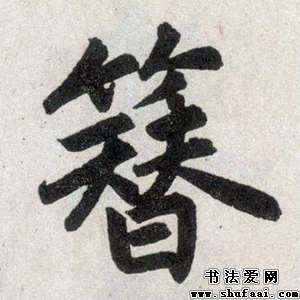 簪
书法爱网
www.shufaai.com